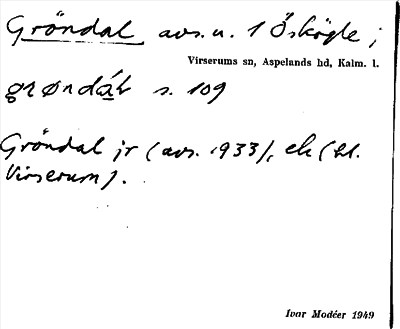 Gröndal avs. u. 1 Öskögle;
Virserums sn, Aspelands hd, Kalm. l.
grøndál s. 109
Gröndal jr (avs. 1933), ek (bl.
Virserum).
Ivar Modéer 1949